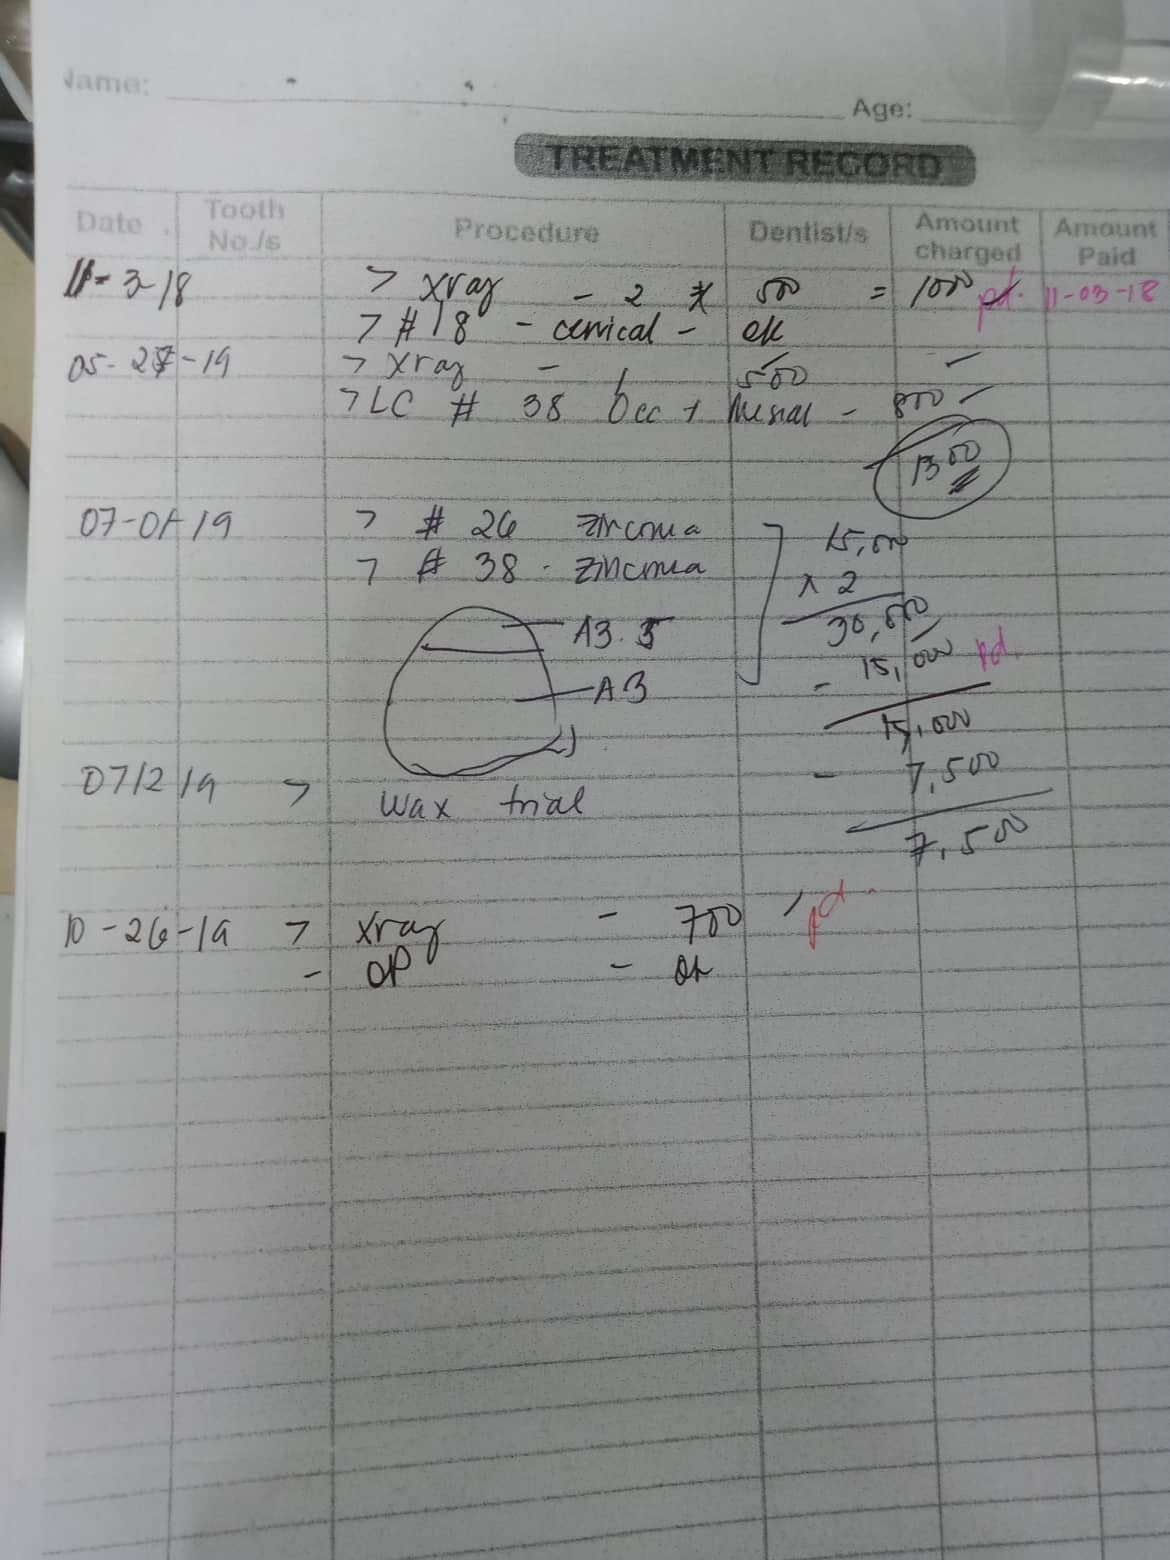 Name:
Age:
TREATMENT RECORD
Date Tooth No./s Procedure Dentist/s Amount charged Amount Paid
11-3-18 > xray - 2 x 500 = 1000 pd. 11-03-18
> #18 - cervical - ok
05-27-19 > xray - 500 -
> LC # 38 Occ + Mesial - 800 -
1300
07-01-19 > # 26 zirconia 15,000
> # 38 - zirconia x 2
30,000
A3.5
- 15,000 pd.
A3
15,000
07/2/19 > - 7,500
wax trial
7,500
10-26-19 > xray - 700 pd.
- OP - ok